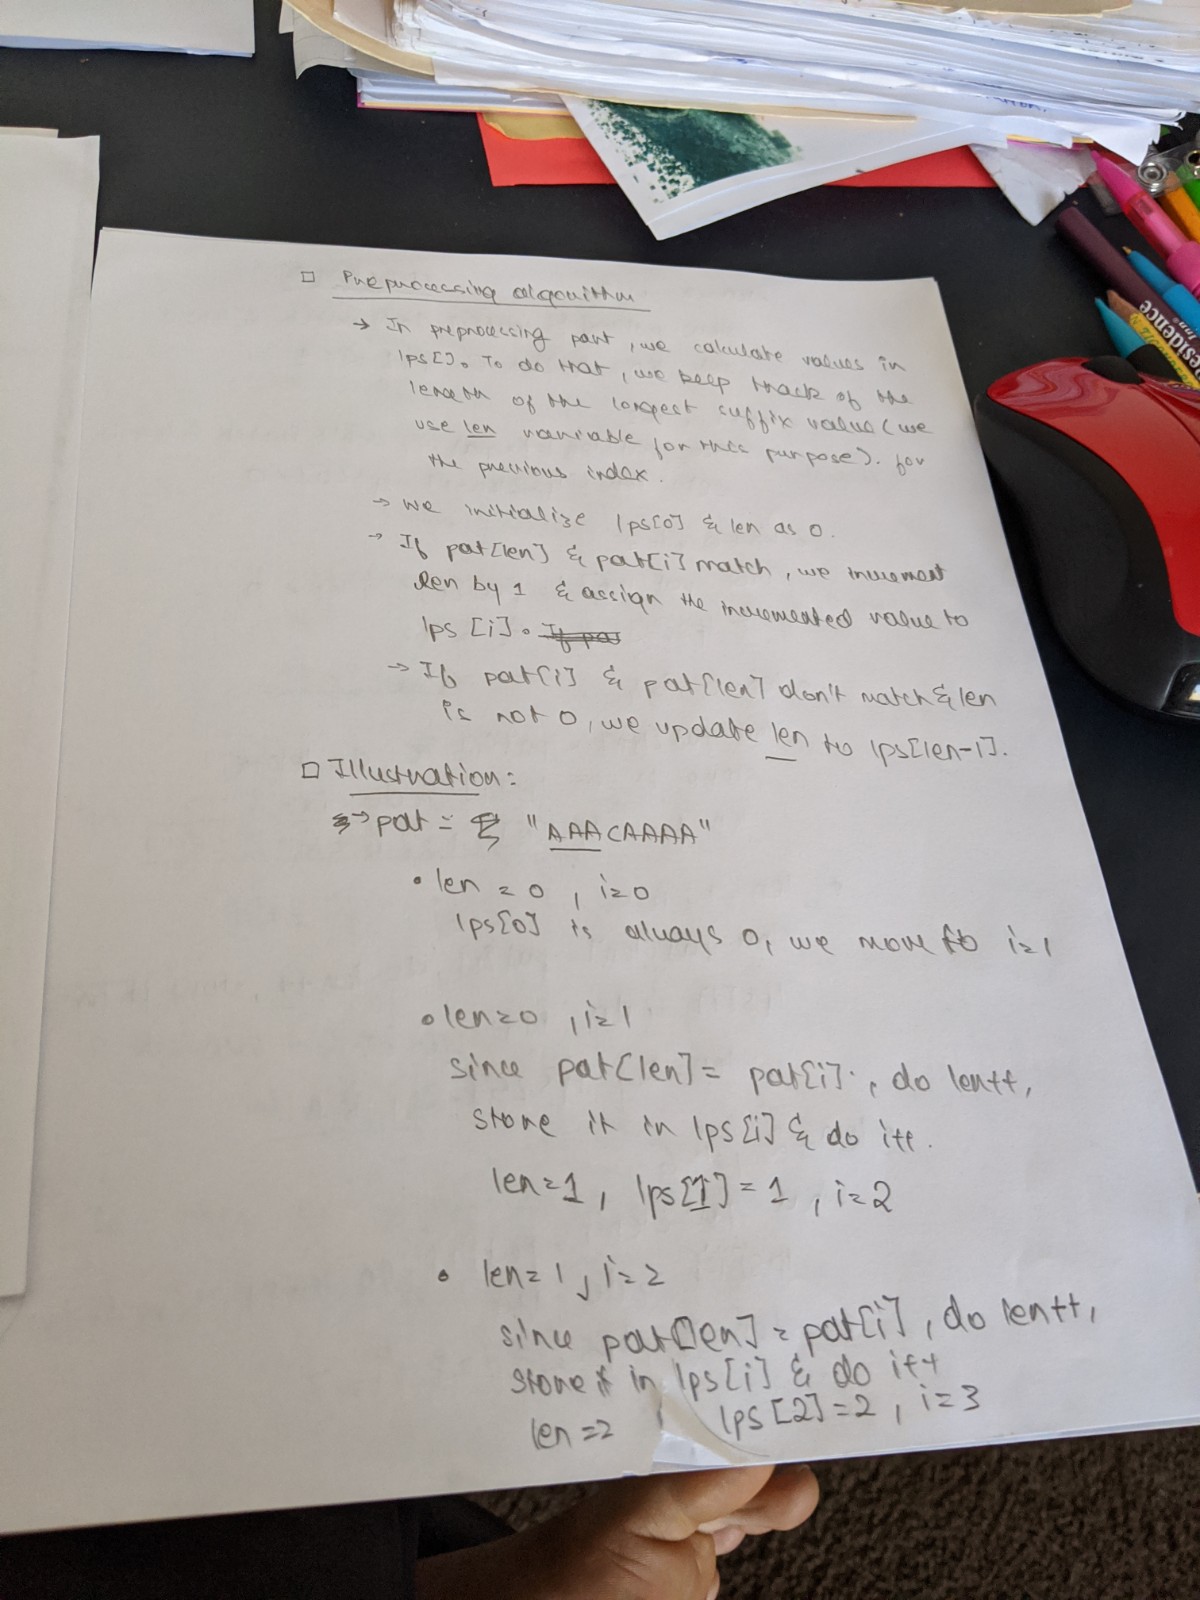 □ Preprocessing algorithm
→ In preprocessing part, we calculate values in
lps[]. To do that, we keep track of the
length of the longest suffix value (we
use len variable for this purpose). for
the previous index.
→ we initialize lps[0] & len as 0.
→ If pat[len] & pat[i] match, we increment
len by 1 & assign the incremented value to
lps [i]. If pat
→ If pat[i] & pat[len] don't match & len
is not 0, we update len to lps[len-1].
□ Illustration:
→ pat = "AAACAAAA"
• len = 0, i=0
lps[0] is always 0, we move to i=1
• len=0, i=1
since pat[len] = pat[i], do len++,
store it in lps[i] & do i++.
len=1, lps[1] = 1, i=2
• len=1, i=2
since pat[len] = pat[i], do len++,
store it in lps[i] & do i++
len=2, lps[2]=2, i=3